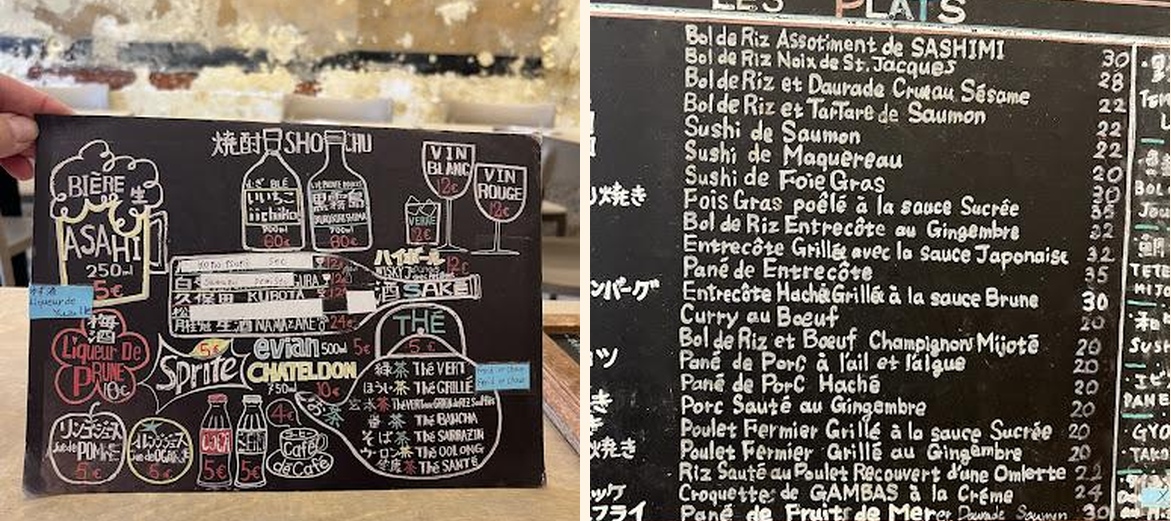 焼酎 SHOCHU
BIÈRE 生
ASAHI
250ml
5€
むぎ BLÉ
いいちこ
iichiko
700ml
80€
黒霧島
KUROKIRISHIMA
700ml
80€
VIN
BLANC
12€
VIN
ROUGE
12€
VERRE
12€
ハイボール
WISKY
12€
酒 SAKE
久保田 KUBOTA
月桂冠 生酒 NAMAZAKE
24€
Liqueur de
梅酒
Liqueur De
PRUNE
18€
5€
Sprite
evian 500ml 5€
CHATELDON
750ml 10€
THÉ
5€
緑茶 Thé VERT
ほうじ茶 Thé GRILLÉ
玄米茶
番茶 Thé BANCHA
そば茶 Thé SARRAZIN
ウーロン茶 Thé OOLONG
健康茶 Thé SANTÉ
リンゴジュース
Jus de POMME
5€
オレンジジュース
5€
COCA
5€
5€
4€
Café
déCafé
LES PLATS
Bol de Riz Assotiment de SASHIMI 30
Bol de Riz Noix de St. Jacques 28
Bol de Riz et Daurade Crue au Sésame 22
Bol de Riz et TarTare de Saumon 22
Sushi de Saumon 22
Sushi de Maquereau 20
Sushi de Foie Gras 30
Fois Gras poêlé à la sauce Sucrée 35
Bol de Riz Entrecôte au Gingembre 22
Entrecôte Grillée avec la sauce Japonaise 32
Pané de Entrecôte 35
Entrecôte Haché Grillé à la sauce Brune 30
Curry au Bœuf 20
Bol de Riz et Bœuf Champignon Mijoté 20
Pané de Porc à l'ail et l'algue 20
Pané de Porc Haché 20
Porc Sauté au Gingembre 20
Poulet Fermier Grillé à la sauce Sucrée 20
Poulet Fermier Grillé au Gingembre 20
Riz Sauté au Poulet Recouvert d'une Omlette 22
Croquette de GAMBAS à la Crème 24
Pané de Fruits de Mer et Daurade Saumon 30
り焼き
ンバーグ
ツ
き
焼き
ッケ
フライ